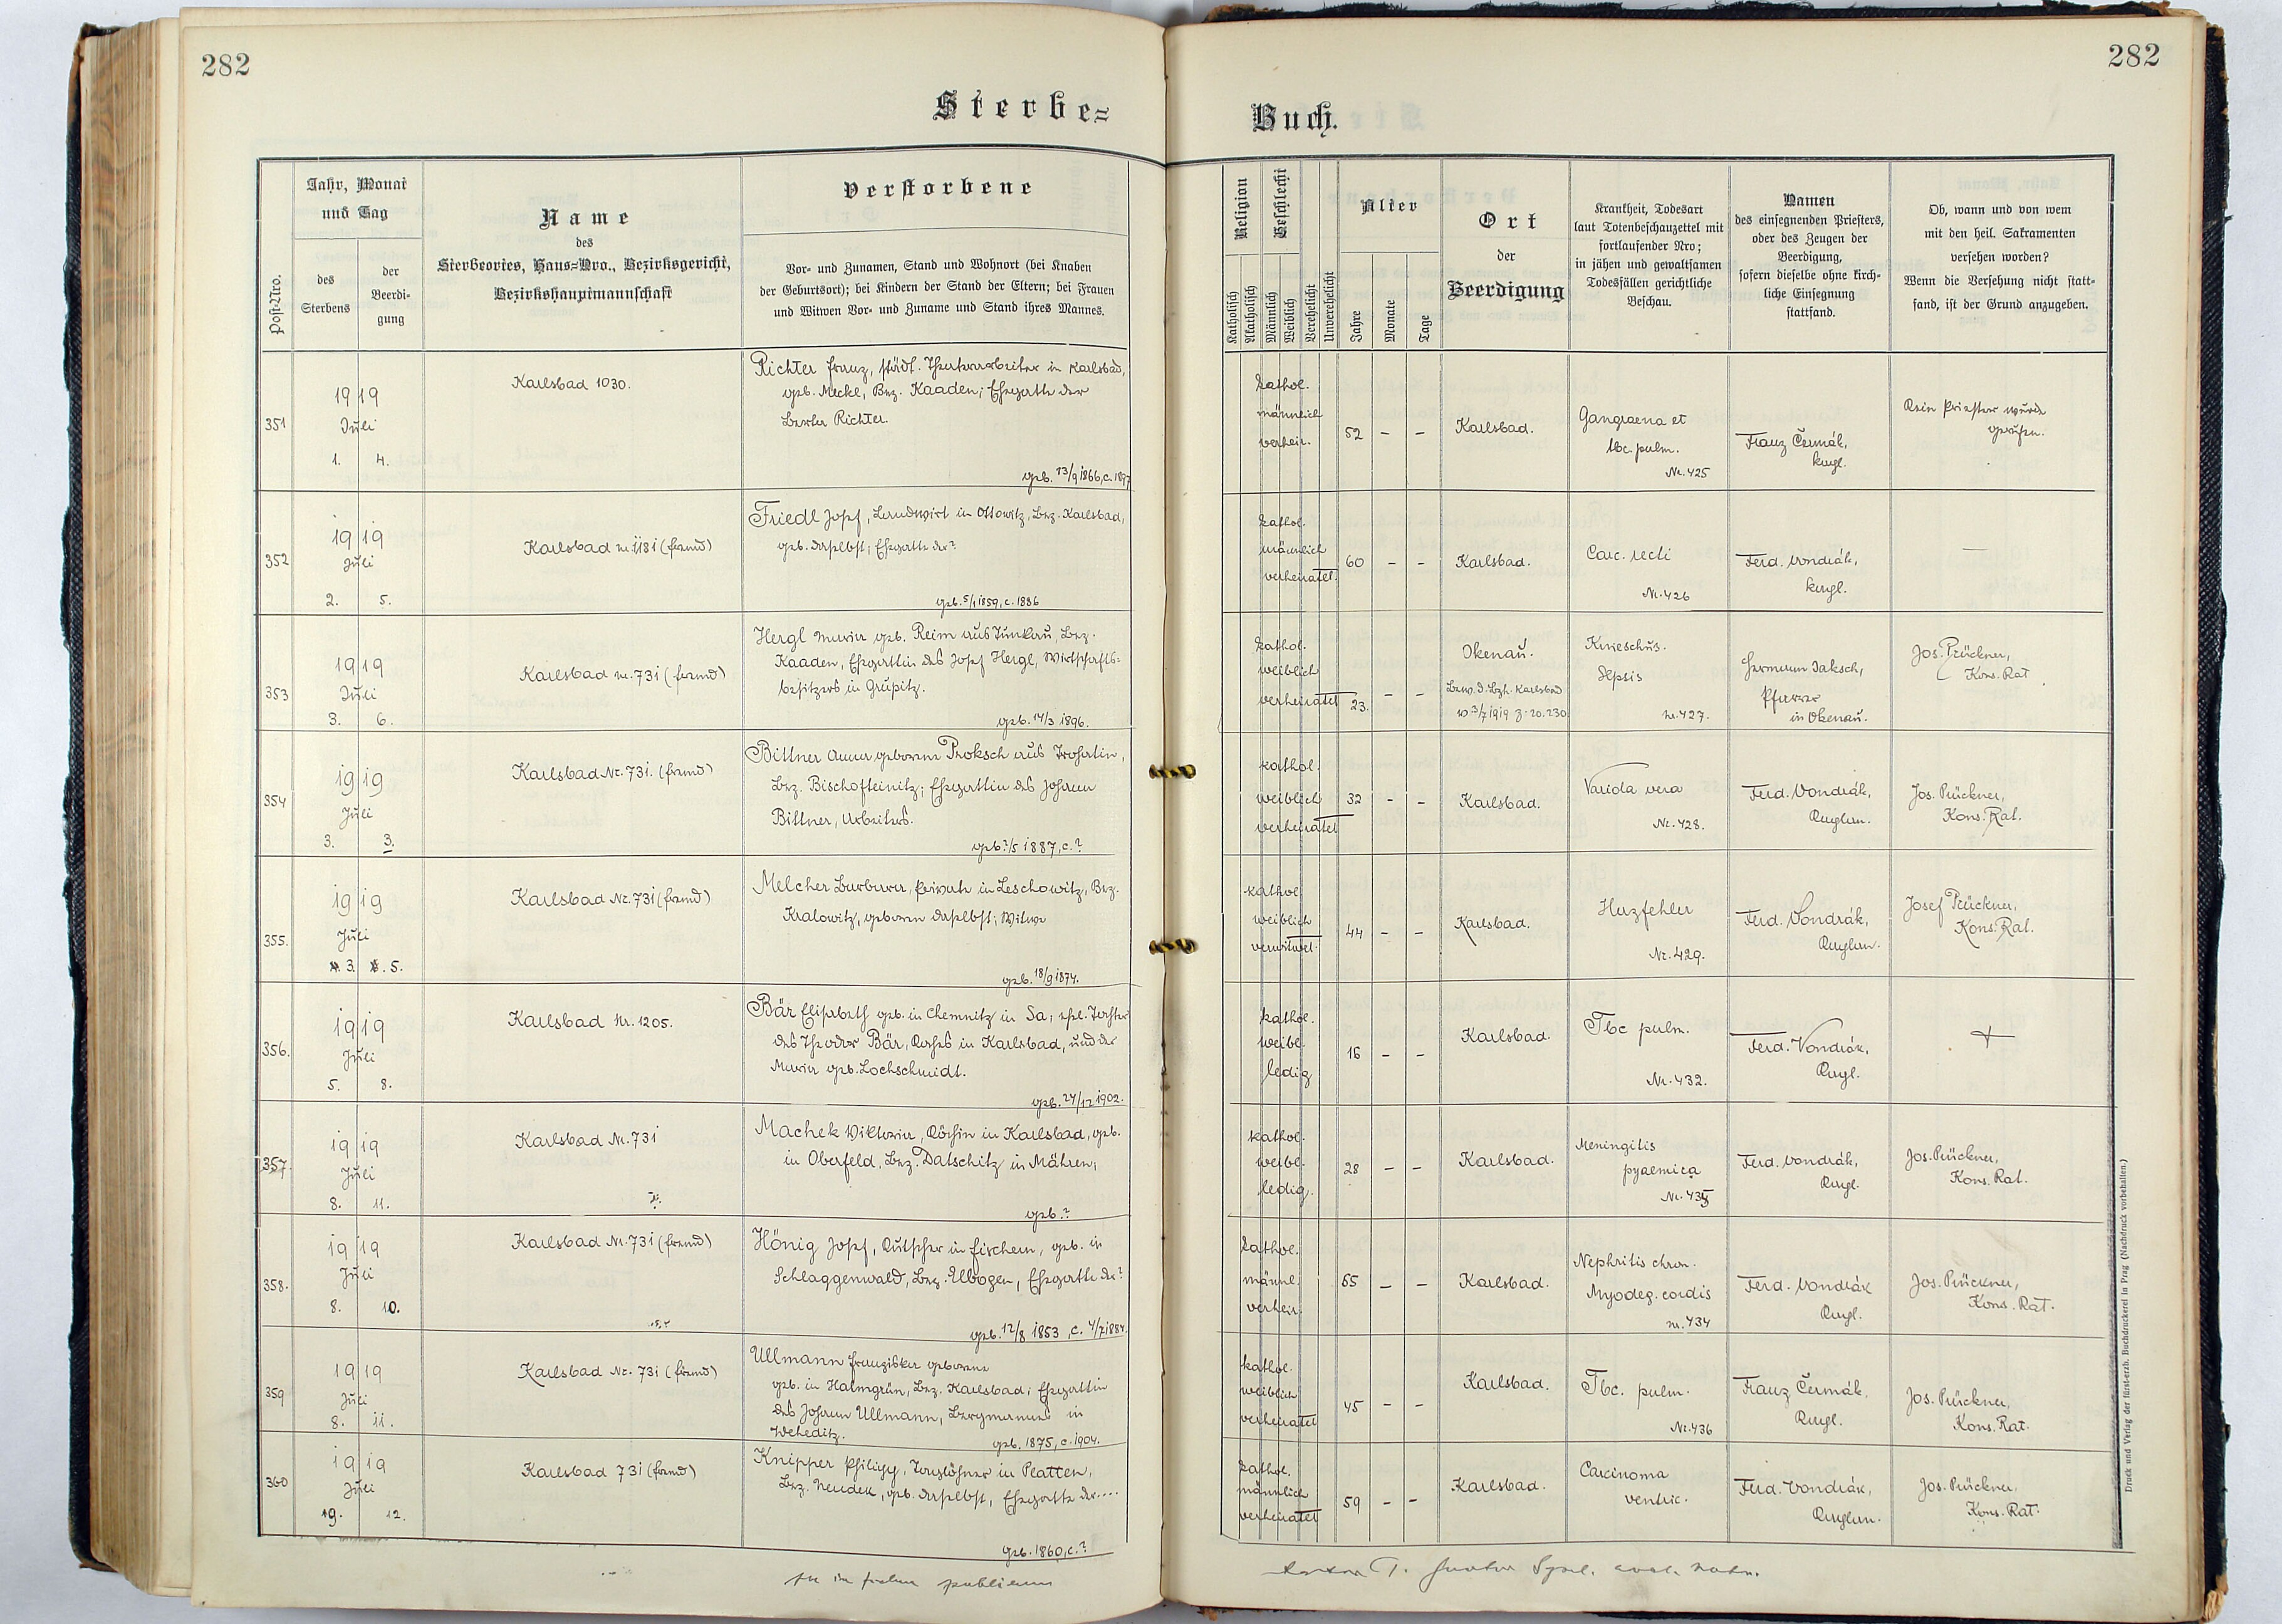 282
282
Sterbe=
Buch.
Post-Nro.
Jahr, Monat
und Tag
des
Sterbens
der
Beerdi-
gung
Name
des
Sterbeortes, Haus=Nro., Bezirksgericht,
Bezirkshauptmannschaft
Verstorbene
Vor- und Zunamen, Stand und Wohnort (bei Knaben
der Geburtsort); bei Kindern der Stand der Eltern; bei Frauen
und Witwen Vor- und Zuname und Stand ihres Mannes.
Religion
Katholisch
Akatholisch
Geschlecht
Männlich
Weiblich
Verehelicht
Unverehelicht
Alter
Jahre
Monate
Tage
Ort
der
Beerdigung
Krankheit, Todesart
laut Totenbeschauzettel mit
fortlaufender Nro;
in jähen und gewaltsamen
Todesfällen gerichtliche
Beschau.
Namen
des einsegnenden Priesters,
oder des Zeugen der
Beerdigung,
sofern dieselbe ohne kirch-
liche Einsegnung
stattfand.
Ob, wann und von wem
mit den heil. Sakramenten
versehen worden?
Wenn die Versehung nicht statt-
fand, ist der Grund anzugeben.
351
1919
Juli
1. 4.
Karlsbad 1030.
Richter Franz, städt. Theaterarbeiter in Karlsbad,
geb. Meckl, Bez. Kaaden; Ehegatte der
Berta Richter.
geb. 13/9 1866, c. 1897
kathol.
männlich
verheir.
52 - -
Karlsbad.
Gangraena et
tbc. pulm.
Nr. 425
Franz Čermák,
kngl.
Kein Priester wurde
gerufen.
352
1919
Juli
2. 5.
Karlsbad nr. 1181 (fremd)
Friedl Josef, Landwirt in Ottowitz, Bez. Karlsbad,
geb. daselbst; Ehegatte der ?
geb. 5/1 1859, c. 1886
kathol.
männlich
verheiratet.
60 - -
Karlsbad.
Carc. recti
Nr. 426
Ferd. Vondrák,
kngl.
—
353
1919
Juli
3. 6.
Karlsbad nr. 731 (fremd)
Hergl Maria geb. Reim aus Tunkau, Bez.
Kaaden, Ehegattin des Josef Hergl, Wirtschafts-
besitzers in Grupitz.
geb. 14/3 1896.
kathol.
weiblich
verheiratet
23. - -
Okenau.
Bew. d. Bzh. Karlsbad
v. 3/7 1919 z. 20.230
Knieschus.
Sepsis
nr. 427.
Hermann Jaksch,
Pfarrer
in Okenau.
Jos. Prückner,
Kons. Rat
354
1919
Juli
3. 3.
Karlsbad Nr. 731. (fremd)
Bittner Anna geborene Proksch aus Trohatin,
Bez. Bischofteinitz; Ehegattin des Johann
Bittner, Arbeiters.
geb. ?/5 1887, c. ?
kathol.
weiblich
verheiratet
32 - -
Karlsbad.
Variola vera
Nr. 428.
Ferd. Vondrák,
Kuglan.
Jos. Prückner,
Kons. Rat.
355.
1919
Juli
3. 5.
Karlsbad Nr. 731 (fremd)
Melcher Barbara, Private in Leschowitz, Bez.
Kralowitz, geboren daselbst; Witwe
geb. 18/9 1874.
kathol
weiblich
verwitwet.
44 - -
Karlsbad.
Herzfehler
Nr. 429.
Ferd. Vondrák,
Kuglan.
Josef Prückner,
Kons. Rat.
356.
1919
Juli
5. 8.
Karlsbad Nr. 1205.
Bär Elisabeth geb. in Chemnitz in Sa, ehel. Tochter
des Theodor Bär, Koches in Karlsbad, und der
Maria geb. Lochschmidt.
geb. 24/12 1902.
kathol.
weibl.
ledig
16 - -
Karlsbad.
Tbc pulm.
Nr. 432.
Ferd. Vondrák,
Kugl.
357.
1919
Juli
8. 11.
Karlsbad Nr. 731
Machek Viktoria, Köchin in Karlsbad, geb.
in Oberfeld, Bez. Datschitz in Mähren,
geb. ?
kathol.
weibl.
ledig.
28 - -
Karlsbad.
Meningitis
pyaemica
Ferd. Vondrák,
Kugl.
Jos. Prückner,
Kons. Rat.
358.
1919
Juli
8. 10.
Karlsbad Nr. 731 (fremd)
Hönig Josef, Kutscher in Fischern, geb. in
Schlaggenwald, Bez. Elbogen, Ehegatte der ?
geb. 12/8 1853, c. 4/7 1884.
kathol.
männl.
verheir.
65 - -
Karlsbad.
Nephritis chron.
Myodeg. cordis
nr. 434
Ferd. Vondrák
Kugl.
Jos. Prückner,
Kons. Rat.
359
1919
Juli
8. 11.
Karlsbad Nr. 731 (fremd)
Ullmann Franziska geborene
geb. in Halmgrün, Bez. Karlsbad; Ehegattin
des Johann Ullmann, Bergmannes in
Weheditz.
geb. 1875, c. 1904.
kathol.
weiblich
verheiratet
45 - -
Karlsbad.
Tbc. pulm.
Nr. 436
Franz Čermák,
Kugl.
Jos. Prückner,
Kons. Rat.
360
1919
Juli
12.
Karlsbad 731 (fremd)
Knipper Philipp, Taglöhner in Platten,
Bez. Neudek, geb. daselbst, Ehegatte der ....
geb. 1860, c. ?
kathol.
männlich
verheiratet
59 - -
Karlsbad.
Carcinoma
ventric.
Ferd. Vondrák,
Kuglan.
Jos. Prückner,
Kons. Rat.
Druck und Verlag der fürst-erzb. Buchdruckerei in Prag (Nachdruck vorbehalten.)